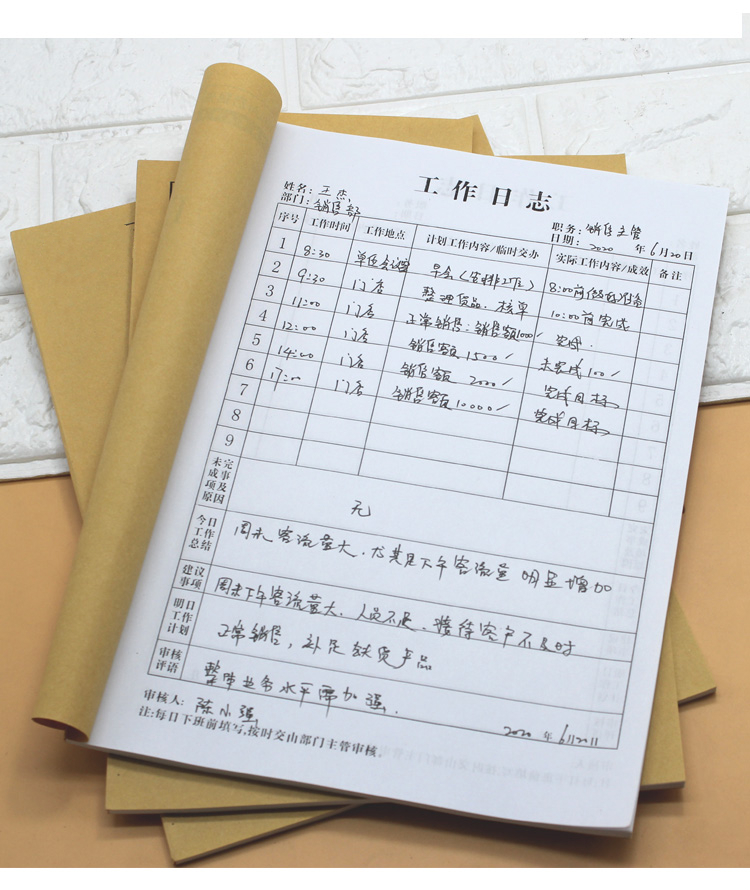 工作日志
姓名: 王杰
部门: 销售部
职务: 销售主管
日期: 2020 年 6月20日
序号 工作时间 工作地点 计划工作内容/临时交办 实际工作内容/成效 备注
1 8:30 单位会议室 早会(安排工作) 8:00前做好准备
2 9:30 门店 整理货品、核单 10:00前完成
3 11:00 门店 正常销售:销售额1000/ 完成.
4 12:00 门店 销售额 1500/ 未完成 100/
5 14:00 门店 销售额 2000/ 完成目标
6 17:00 门店 销售额 10000/ 完成目标
7
8
9
未完成事项及原因 无
今日工作总结 周末客流量大,尤其是下午客流量明显增加
建议事项 周末下午客流量大,人员不足,接待客户不及时
明日工作计划 正常销售,补足缺货产品
审核评语 整体业务水平需加强.
审核人: 陈小强 2020 年 6月20日
注:每日下班前填写,按时交由部门主管审核。